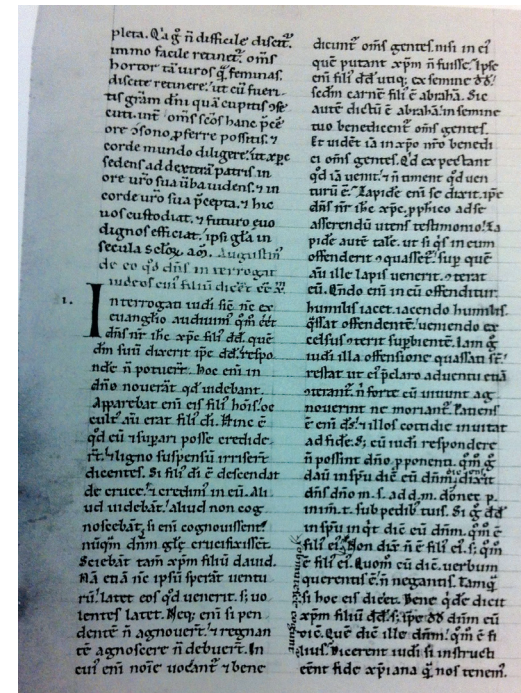 pleta. Q̄a g̊ n̄ difficile discit᷑.
immo facile retinet᷑. om̄s
hortor tā uiros q̄ feminas.
discite retinere. ut cū fueri-
tis grām dn̄i quā cupitis ꝯse
cuti. int̄ om̄s sc̄os hanc p̄ce
ore ꝯsono ꝓferre possitis. ⁊
corde mundo diligere. ut xp̄c
sedens ad dextrā patris in
ore ur̄o sua ūba uidens. ⁊ in
corde ur̄o sua p̄cepta. ⁊ hic
uos custodiat. ⁊ futuro euo
dignos efficiat. ipsi gl̄a in
secula scl̄oꝝ. am̄. Augustin᷒
de eo qd̄ dn̄s interrogat
iudeos cui᷒ filiū dicēt eē x̄.
I nterrogati iudi sic̄ n̄c ex
euanglio audiuim᷒ qm̄ eēt
dn̄s nr̄ ih̄c xp̄c fili᷒ dd̄. quē
dm̄ suū dixerit ip̄c dd̄. respo
nde n̄ potuer̄t. Hoc eni in
dn̄o nouerāt qd̄ uidebant.
Apparebat eni eis fili᷒ hōis. oc
cult᷒ au᷑ erat fili᷒ dī. Hinc ē
qd̄ eū ⁊supari posse credide
rt᷑. ⁊ ligno suspensū irriser̄t
dicentes. Si fili᷒ dī ē descendat
de cruce. ⁊ credim᷒ in eū. Ali
ud uidebāt. aliud non cog
noscebāt. si eni cognouissent.
nūq̄m dn̄m glē crucifixissēt.
Sciebāt tam̄ xp̄m filiū dauid.
Nā etiā n̄c ipsū sperāt uentu
rū. latet eos qd̄ uenerit. s; uo
lentes latet. Neq; eni si pen
dentē n̄ agnouer̄t. ⁊ regnan
tē agnoscere n̄ debuer̄t. In
cui᷒ eni noīe uocant᷑ ⁊ bene
dicunt᷑ om̄s gentes. nisi in ei᷒
quē putant xp̄m n̄ fuisse. Ipse
eni fili᷒ dd̄. utiq; ex semine dd̄.
sedm̄ carnē fili᷒ ē abrahā. Sic
autē dictū ē abrahā. in semine
tuo benedicent᷑ om̄s gentes.
Et uidēt iā in xp̄o nr̄o benedi
ci om̄s gentes. Qd̄ expectant
qd̄ iā uenit. ⁊ n̄ timent qd̄ uen
turū ē. Lapidē eni se dixit. ip̄e
dn̄s nr̄ ih̄c xp̄c. ꝓphico ad se
asserendū utens testimonio. La
pidē autē talē. ut si q̄s in eum
offenderit ⁊ quasset᷑. sup̄ quē
au᷑ ille lapis uenerit. ꝯterat
eū. Qn̄do eni in eū offenditur.
humilis iacet. iacendo humilis.
q̄ssat offendentē. ueniendo ex
celsus ꝯterit supbiente. Iam g̊
iudi illa offensione quassati st̄.
restat ut ei᷒ p̄claro aduentu etiā
ꝯterant᷑. n̄ forte cū uiuunt ag
nouerint ne moriant᷑. Patiens
ē eni ds̄. ⁊ illos cottidie inuitat
ad fidē. S; cū iudi respondere
n̄ possint dn̄o ꝓponenti. qm̄ g̊
dauid in spū dic eū dn̄m. dixit
dn̄s dn̄o m. s. a d. d. m. donec p.
in im̄. t. sub pedib᷒ tuis. Si g̊ dd̄
in spū inqt dic eū dn̄m. qm̄ ē
fili᷒ ei᷒. Non dix̄ n̄ ē fili᷒ ei᷒. s; qm̄
ē fili᷒ ei᷒. Quom̄ cū dic. uerbum
querentis ē. n̄ negantis. Tamq̄
si hoc eis dicēt. Bene q̄de dicit
xp̄m filiū dd̄. s; ip̄e dd̄ dn̄m eū
uoc̄. Quē dic ille dn̄m. qm̄ ē fi
lius. Dicerent iudi si instructi
eēnt fide xp̄iana q̄ nos tenem᷒.